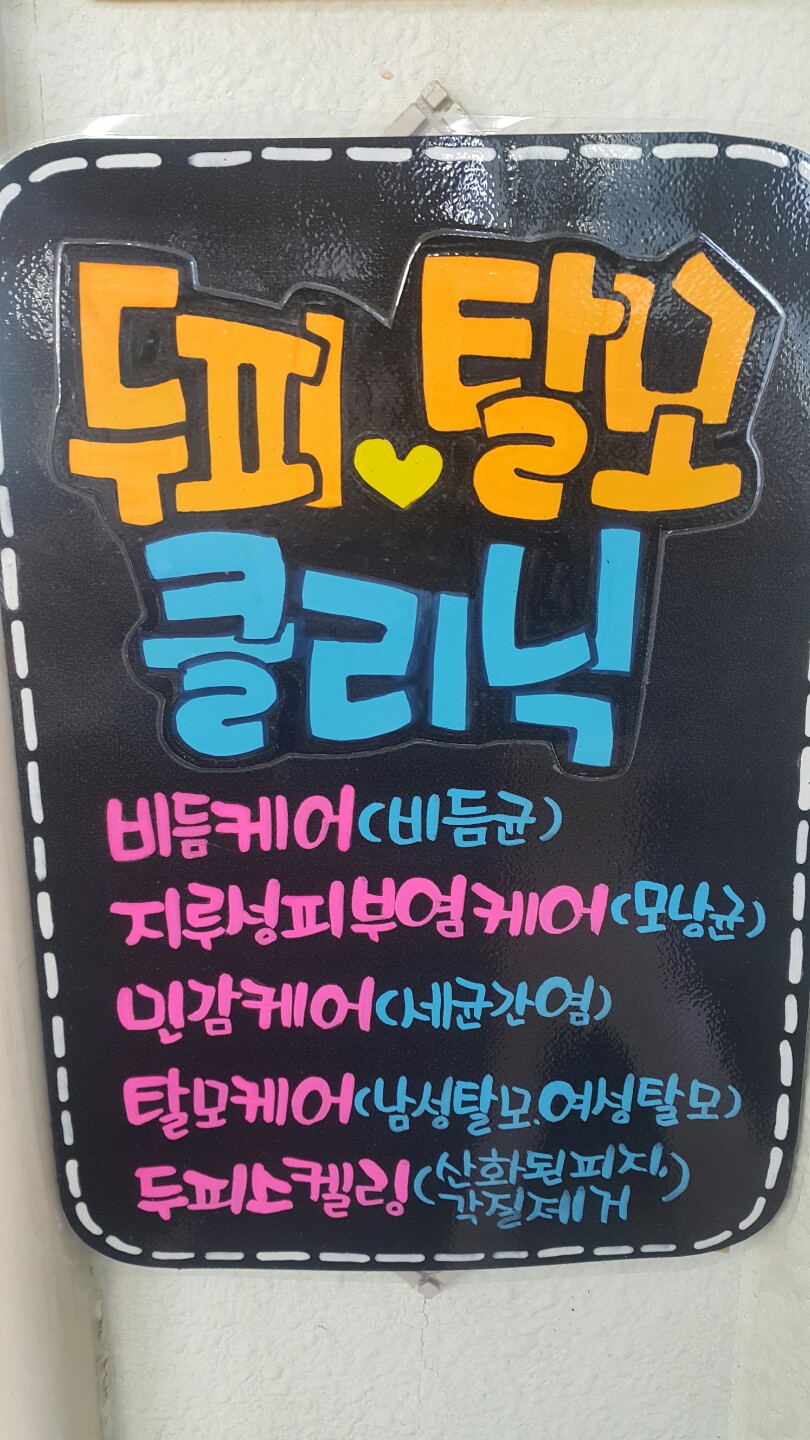 두피♥탈모
클리닉
비듬케어(비듬균)
지루성피부염케어(모낭균)
민감케어(세균간염)
탈모케어(남성탈모.여성탈모)
두피스켈링(산화된피지.
각질제거)